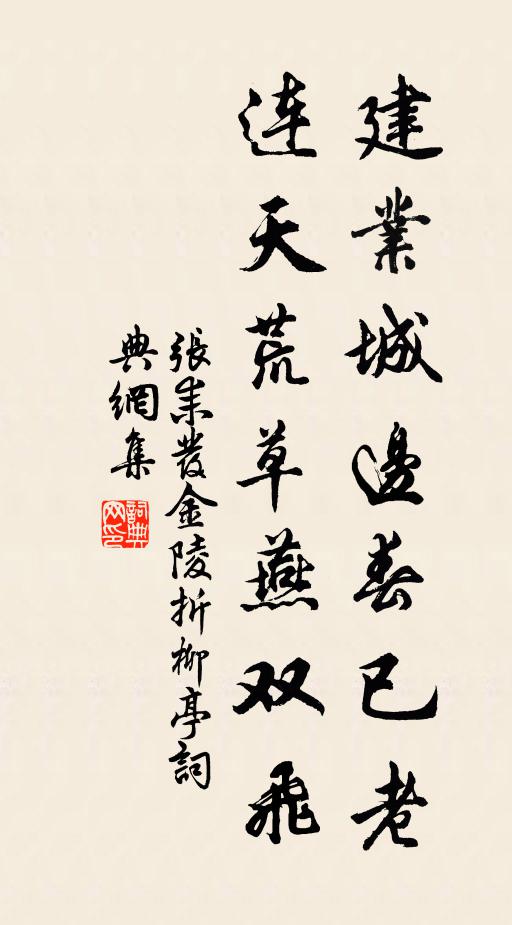 建業城邊春已老
連天荒草燕双飛
張耒發金陵折柳亭詞
典網集
詞典網印